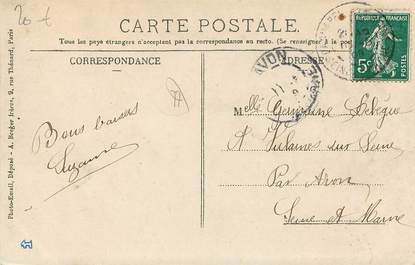 20 f
CARTE POSTALE.
Tous les pays étrangers n'acceptent pas la correspondance au recto. (Se renseigner à la poste)
RÉPUBLIQUE FRANÇAISE
5c
POSTES
CORRESPONDANCE
ADRESSE
AVON
11
Bons baisers
Suzanne
Melle Germaine
A Vulaines sur Seine
Par Avon
Seine et Marne
Photo-Email, Déposé - A. Breger frères, 9, rue Thénard, Paris